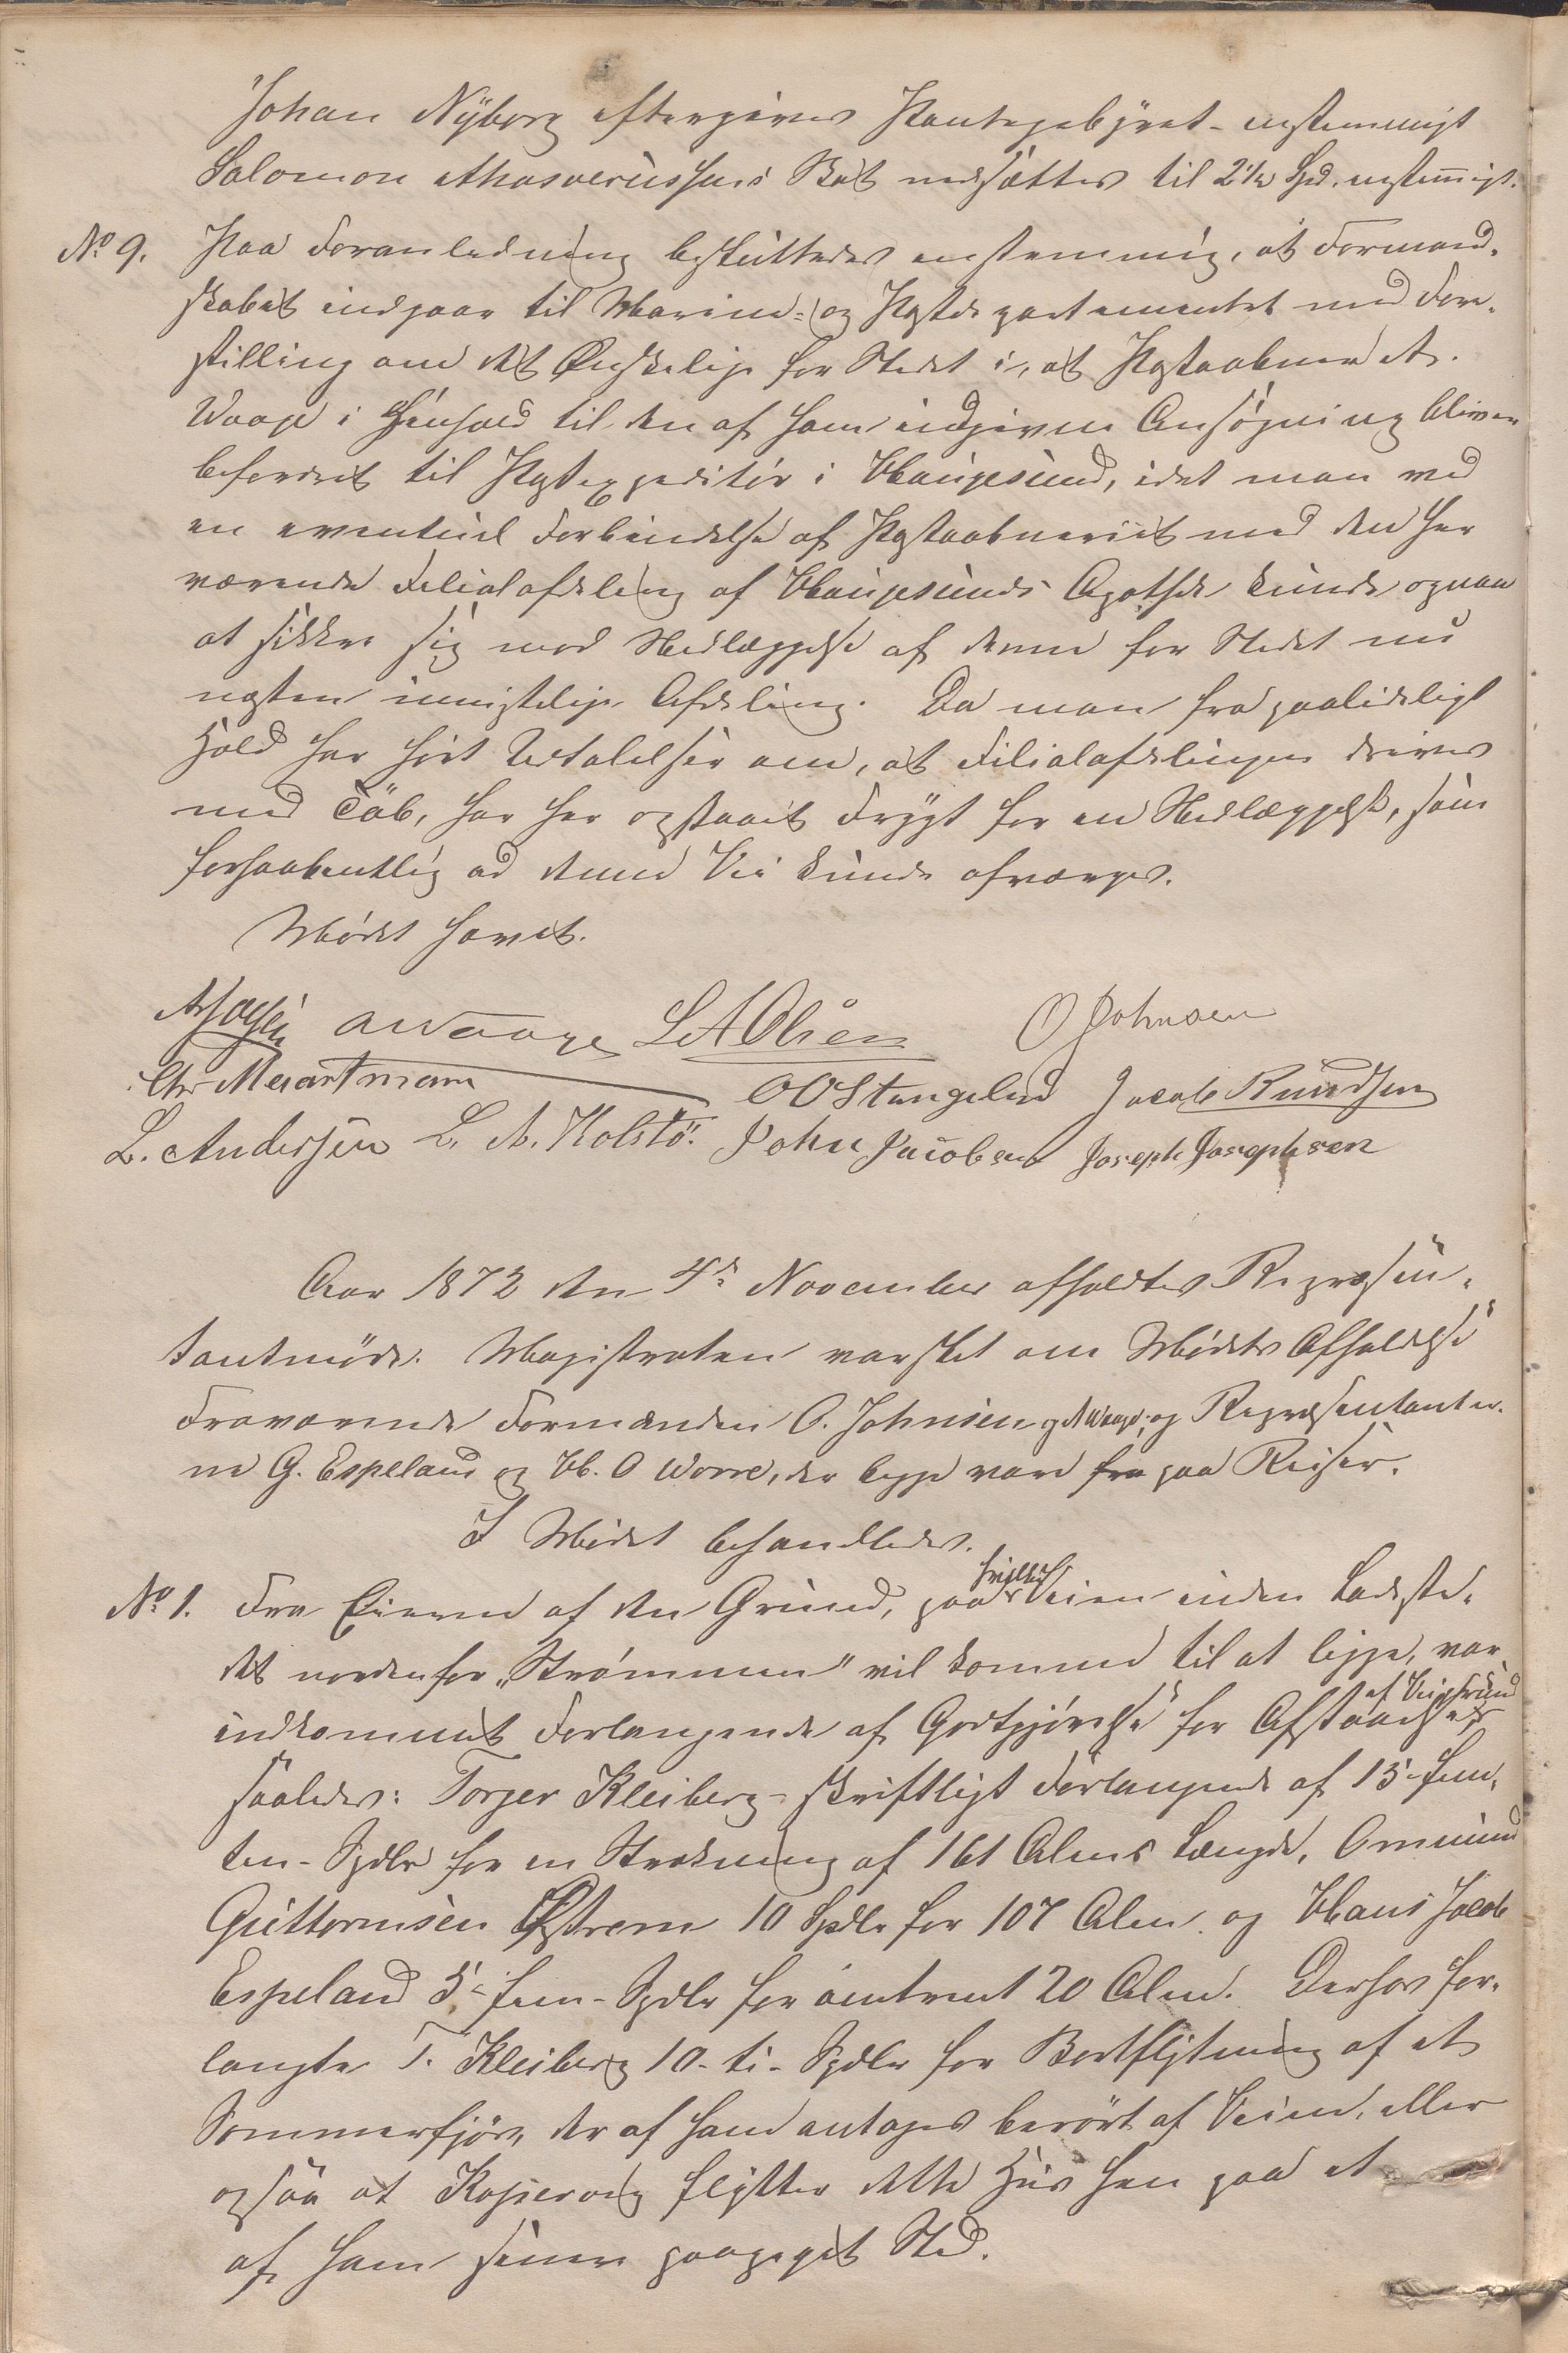 Johan Nyborg eftergives Havnegebyret - enstemmigt
Salomon Ahasverussens Skat nedsættes til 2 1/2 Spd. enstemmigt.
No 9. Paa Foranledning besluttedes enstemmig, at Formand-
skabet indgaar til Marine- og Postdepartementet med Fore-
stilling om det Ønskelige for Stedet i, at Postaabner A.
Waage i Henhold til den af ham indgivne Ansøgning bliver
befordret til Postexpeditør i Haugesund, idet man ved
en eventuel Forbindelse af Postaabneriet med den her
værende Filialafdeling af Haugesunds Apothek kunde opnaa
at sikkre sig mod Nedlæggelse af denne for Stedet nu
næsten umistelige Afdeling. Da man fra paalideligt
Hold har hørt Udtalelser om, at Filialafdelingen drives
med Tab, har her opstaaet Frygt for en Nedlæggelse, som
forhaabentlig ad denne Vei kunde afværges.
Mødet hævet.
A Waage L A Olsen O Johnsen
Chr Meiantmann O O Stangeland Jacob Knudsen
L. Andersen L. A. Kolstø. John Jacobsen Joseph Josephsen
Aar 1872 den 4de November afholdtes Repræsen-
tantmøde. Magistraten varslet om Mødets Afholdelse
Fraværende Formænden O. Johnsen og A Waage, og Repræsentanter-
ne G. Espeland og H. O Worre, der begge vare fra paa Reiser.
I Mødet behandledes.
No 1. Fra Eierne af den Grund, paa hvilken Veien inden Ladeste-
det nordenfor "Strømmen" vil komme til at ligge, var
indkommet Forlangende af Godtgjørelse for Afstaaelse af Veigrund
saaledes: Torger Kleiberg - skriftligt Forlangende af 15 - fem-
ten - Spdlr for en Strækning af 161 Alens Længde, Ommund
Guttormsen Østrem 10 Spdlr for 107 Alen og Hans Jacob
Espeland 5 - fem - Spdlr for omtrent 20 Alen. Derhos for-
langte T. Kleiberg 10 - ti - Spdlr for Bortflytning af et
Sommerfjøs, der af ham antages berørt af Veien, eller
ogsaa at Kopervig flytter dette Hus hen paa et
af ham senere paapeget Sted.